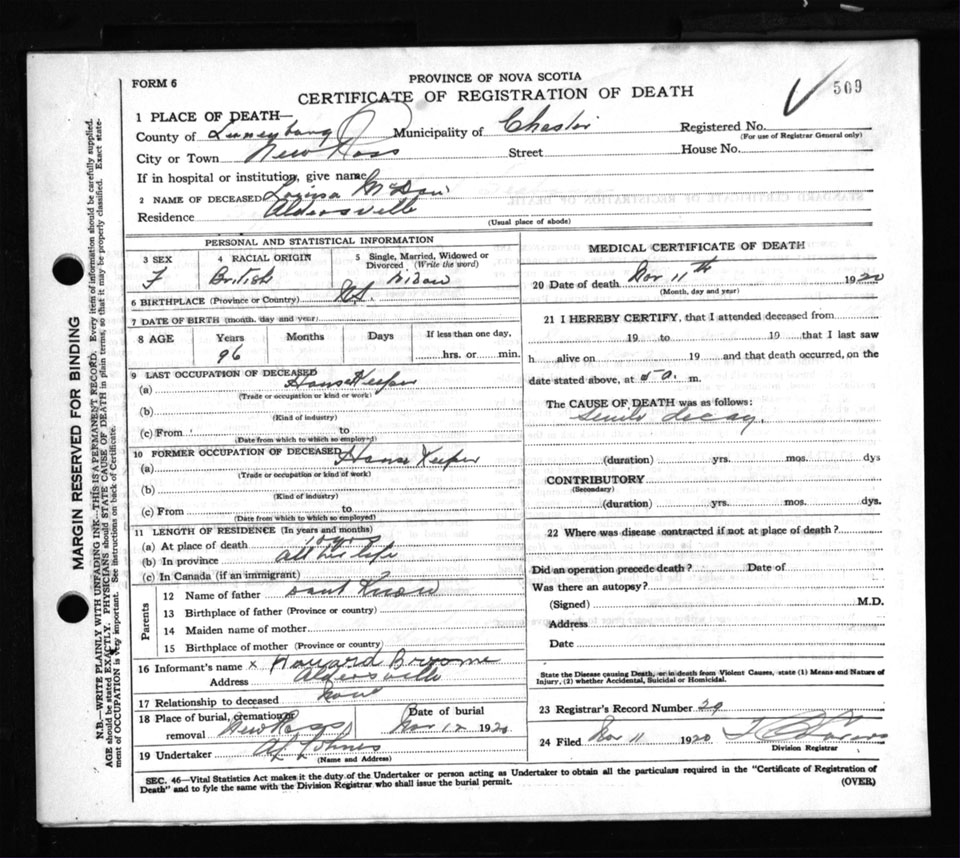 FORM 6
PROVINCE OF NOVA SCOTIA
CERTIFICATE OF REGISTRATION OF DEATH
509
1 PLACE OF DEATH—
County of Lunenburg Municipality of Chester Registered No.
(For use of Registrar General only)
City or Town New Ross Street House No.
If in hospital or institution, give name
2 NAME OF DECEASED Louisa
Residence Aldersville
(Usual place of abode)
PERSONAL AND STATISTICAL INFORMATION
3 SEX F
4 RACIAL ORIGIN British
5 Single, Married, Widowed or Divorced (Write the word) widow
6 BIRTHPLACE (Province or Country) N.S.
7 DATE OF BIRTH (month, day and year)
8 AGE Years Months Days If less than one day,
96 hrs. or min.
9 LAST OCCUPATION OF DECEASED
(a) House Keeper
(Trade or occupation or kind or work)
(b)
(Kind of industry)
(c) From to
(Date from which to which so employed)
10 FORMER OCCUPATION OF DECEASED
(a) House Keeper
(Trade or occupation or kind of work)
(b)
(Kind of industry)
(c) From to
(Date from which to which so employed)
11 LENGTH OF RESIDENCE (In years and months)
(a) At place of death 10 yrs
(b) In province all her life
(c) In Canada (if an immigrant)
Parents
12 Name of father dont Know
13 Birthplace of father (Province or country)
14 Maiden name of mother
15 Birthplace of mother (Province or country)
16 Informant's name x Howard Broome
Address Aldersville
17 Relationship to deceased none
18 Place of burial, cremation or removal New Ross Date of burial Nov 12 1920
19 Undertaker
(Name and Address)
MEDICAL CERTIFICATE OF DEATH
20 Date of death Nov 11th 1920
(Month, day and year)
21 I HEREBY CERTIFY, that I attended deceased from
19 to 19 that I last saw
h alive on 19 and that death occurred, on the
date stated above, at 5 a. m.
The CAUSE OF DEATH was as follows:
Senile decay
(duration) yrs. mos. dys
CONTRIBUTORY
(Secondary)
(duration) yrs. mos. dys.
22 Where was disease contracted if not at place of death?
Did an operation precede death? Date of
Was there an autopsy?
(Signed) M.D.
Address
Date
State the Disease causing Death, or in death from Violent Causes, state (1) Means and Nature of
Injury, (2) whether Accidental, Suicidal or Homicidal.
23 Registrar's Record Number 29
24 Filed Nov 11 1920
Division Registrar
SEC. 46—Vital Statistics Act makes it the duty of the Undertaker or person acting as Undertaker to obtain all the particulars required in the "Certificate of Registration of
Death" and to fyle the same with the Division Registrar who shall issue the burial permit. (OVER)
MARGIN RESERVED FOR BINDING
N.B.—WRITE PLAINLY WITH UNFADING INK—THIS IS A PERMANENT RECORD. Every item of information should be carefully supplied.
AGE should be stated EXACTLY. PHYSICIANS should STATE CAUSE OF DEATH in plain terms, so that it may be properly classified. Exact state-
ment of OCCUPATION is very important. See instructions on back of Certificate.